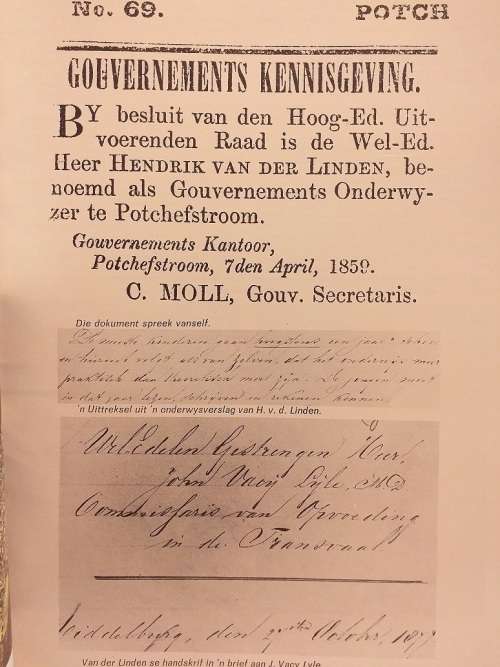 No. 69. POTCH
GOUVERNEMENTS KENNISGEVING.
BY besluit van den Hoog-Ed. Uit-
voerenden Raad is de Wel-Ed.
Heer HENDRIK VAN DER LINDEN, be-
noemd als Gouvernements Onderwy-
zer te Potchefstroom.
Gouvernements Kantoor,
Potchefstroom, 7den April, 1859.
C. MOLL, Gouv. Secretaris.
Die dokument spreek vanself.
De meeste kinderen gaan hoogstens een jaar
en hieruit volgt als van zelven, dat het onderwijs meer
praktisch dan theoretisch moet zijn. De jongens moet
in dat jaar lezen, schrijven en rekenen kennen.
'n Uittreksel uit 'n onderwysverslag van H. v. d. Linden.
WelEdelen Gestrengen Heer,
John Vacy Lyle, MD
Commissaris van Opvoeding
in de Transvaal
Middelburg, den October, 187
Van der Linden se handskrif in 'n brief aan J. Vacy Lyle.